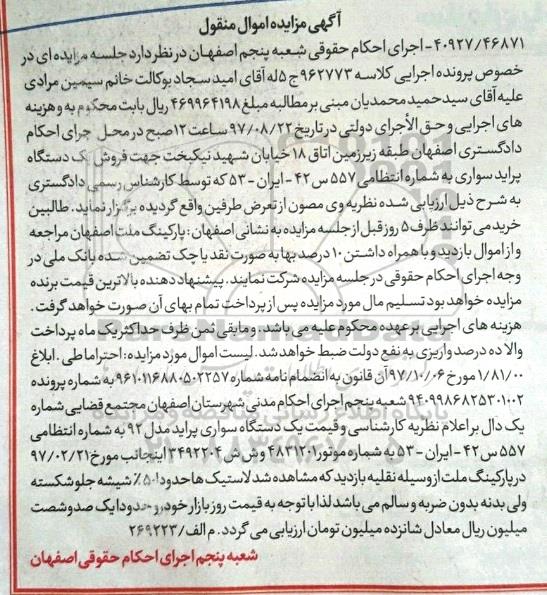 آگهی مزایده اموال منقول
۴۰۹۲۷/۴۶۸۷۱- اجرای احکام حقوقی شعبه پنجم اصفهان در نظر دارد جلسه مزایده ای در
خصوص پرونده اجرایی کلاسه ۹۶۲۷۷۳ ج ۵ له آقای امید سجاد بوکالت خانم سیمین مرادی
علیه آقای سید حمید محمدیان مبنی بر مطالبه مبلغ ۴۶۹۹۶۴۱۹۸ ریال بابت محکوم به و هزینه
های اجرایی و حق الأجرای دولتی در تاریخ ۹۷/۰۸/۲۲ ساعت ۱۲ صبح در محل اجرای احکام
دادگستری اصفهان طبقه زیرزمین اتاق ۱۸ خیابان شهید نیکبخت جهت فروش یک دستگاه
پراید سواری به شماره انتظامی ۵۵۷ س ۴۲ - ایران - ۵۳ که توسط کارشناس رسمی دادگستری
به شرح ذیل ارزیابی شده نظریه وی مصون از تعرض طرفین واقع گردیده برگزار نماید. طالبین
خرید می توانند ظرف ۵ روز قبل از جلسه مزایده به نشانی اصفهان: پارکینگ ملت اصفهان مراجعه
و از اموال بازدید و با همراه داشتن ۱۰ درصد بها به صورت نقد یا چک تضمین شده بانک ملی در
وجه اجرای احکام حقوقی در جلسه مزایده شرکت نمایند. پیشنهاد دهنده بالاترین قیمت برنده
مزایده خواهد بود تسلیم مال مورد مزایده پس از پرداخت تمام بهای آن صورت خواهد گرفت.
هزینه های اجرایی بر عهده محکوم علیه می باشد. و مابقی ثمن ظرف حداکثر یک ماه پرداخت
والا ده درصد واریزی به نفع دولت ضبط خواهد شد. لیست اموال مورد مزایده: احترا ما طی. ابلاغ
۱/۸۱/۰۰ مورخ ۹۷/۱۰/۰۶ آن قانون به انضمام نامه شماره ۹۶۱۰۱۱۶۸۸۰۵۰۲۳۵۷ به شماره پرونده
۹۴۰۹۹۸۶۸۲۵۳۰۱۰۰۲ شعبه پنجم اجرای احکام مدنی شهرستان اصفهان مجتمع قضایی شماره
یک دال بر اعلام نظریه کارشناسی و قیمت یک دستگاه سواری پراید مدل ۹۲ به شماره انتظامی
۵۵۷ س ۴۲ - ایران - ۵۳ به شماره موتور ۴۸۳۱۲۰۱ و ش ش ۳۴۹۲۲۰۴ اینجانب مورخ ۹۷/۰۲/۲۱
در پارکینگ ملت از وسیله نقلیه بازدید که مشاهده شد لاستیک ها حدودا ۵۰٪ شیشه جلو شکسته
ولی بدنه بدون ضربه و سالم می باشد لذا با توجه به قیمت روز بازار خودرو حدودا یک صد و شصت
میلیون ریال معادل شانزده میلیون تومان ارزیابی می گردد. م الف/ ۲۶۹۲۲۳
شعبه پنجم اجرای احکام حقوقی اصفهان
ParsNamadData